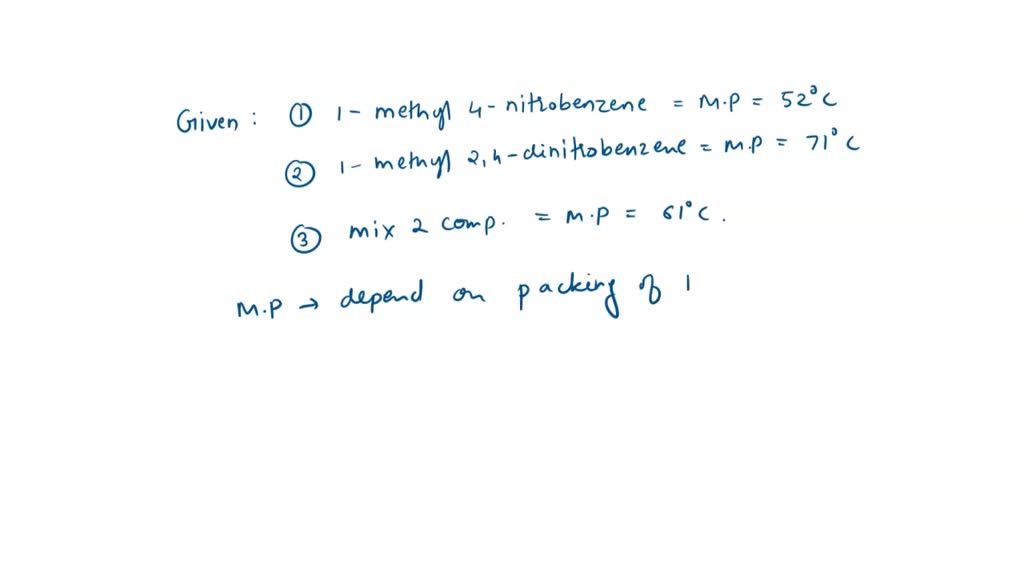 Given : ① 1- methyl 4- nitrobenzene = M.P = 52°C
② 1- methyl 2,4-dinitrobenzene = M.P = 71°C
③ mix 2 comp. = M.P = 61°C.
M.P → depend on packing of l